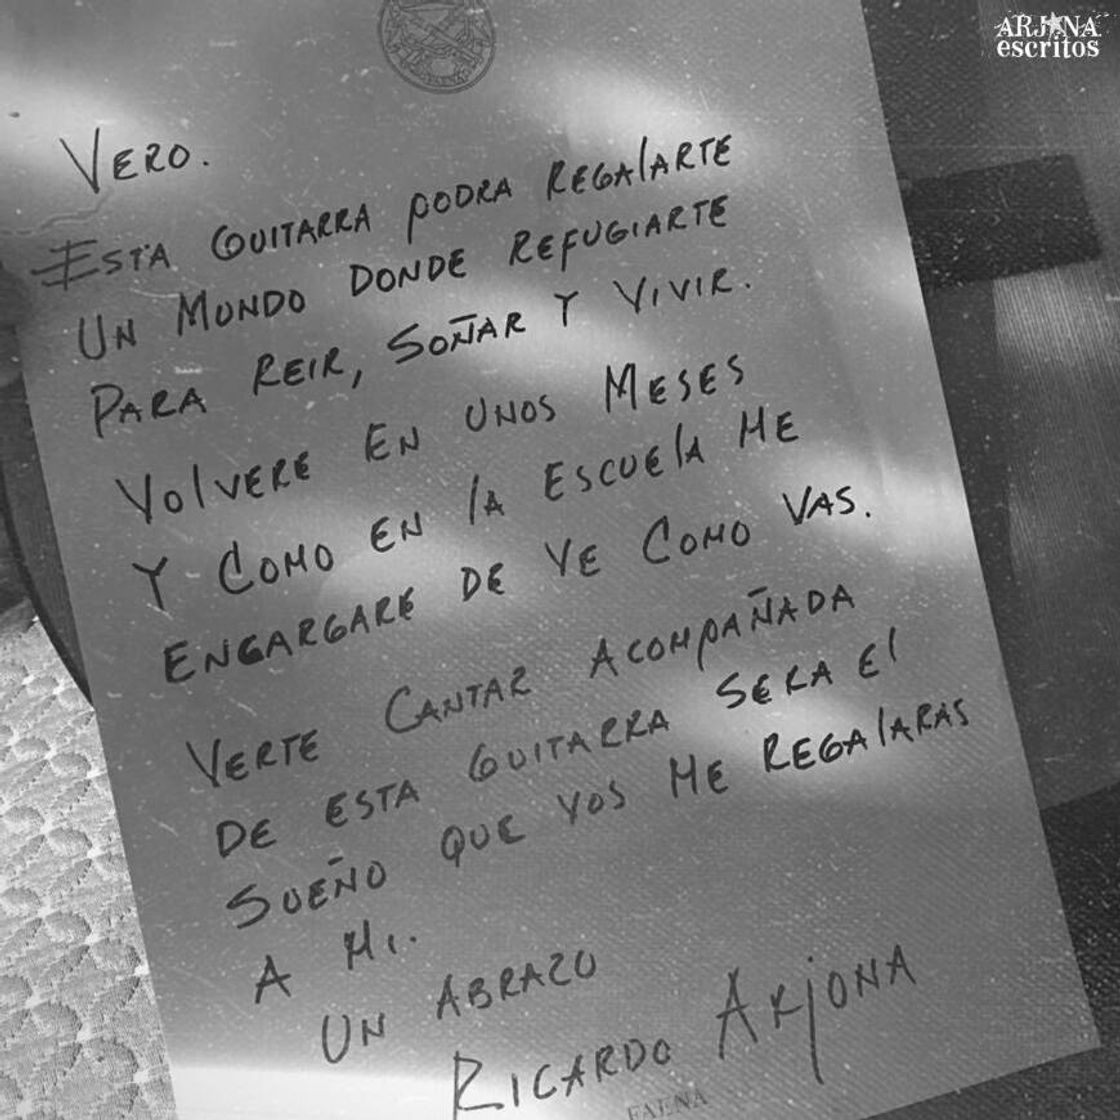 ARJONA
escritos
VERO.
ESTA GUITARRA PODRA REGALARTE
UN MUNDO DONDE REFUGIARTE
PARA REIR, SOÑAR Y VIVIR.
VOLVERE EN UNOS MESES
Y COMO EN LA ESCUELA ME
ENGARGARE DE VE COMO VAS.
VERTE CANTAR ACOMPAÑADA
DE ESTA GUITARRA SERA EL
SUEÑO QUE VOS ME REGALARAS
A MI.
UN ABRAZO
RICARDO ARJONA
FAENA